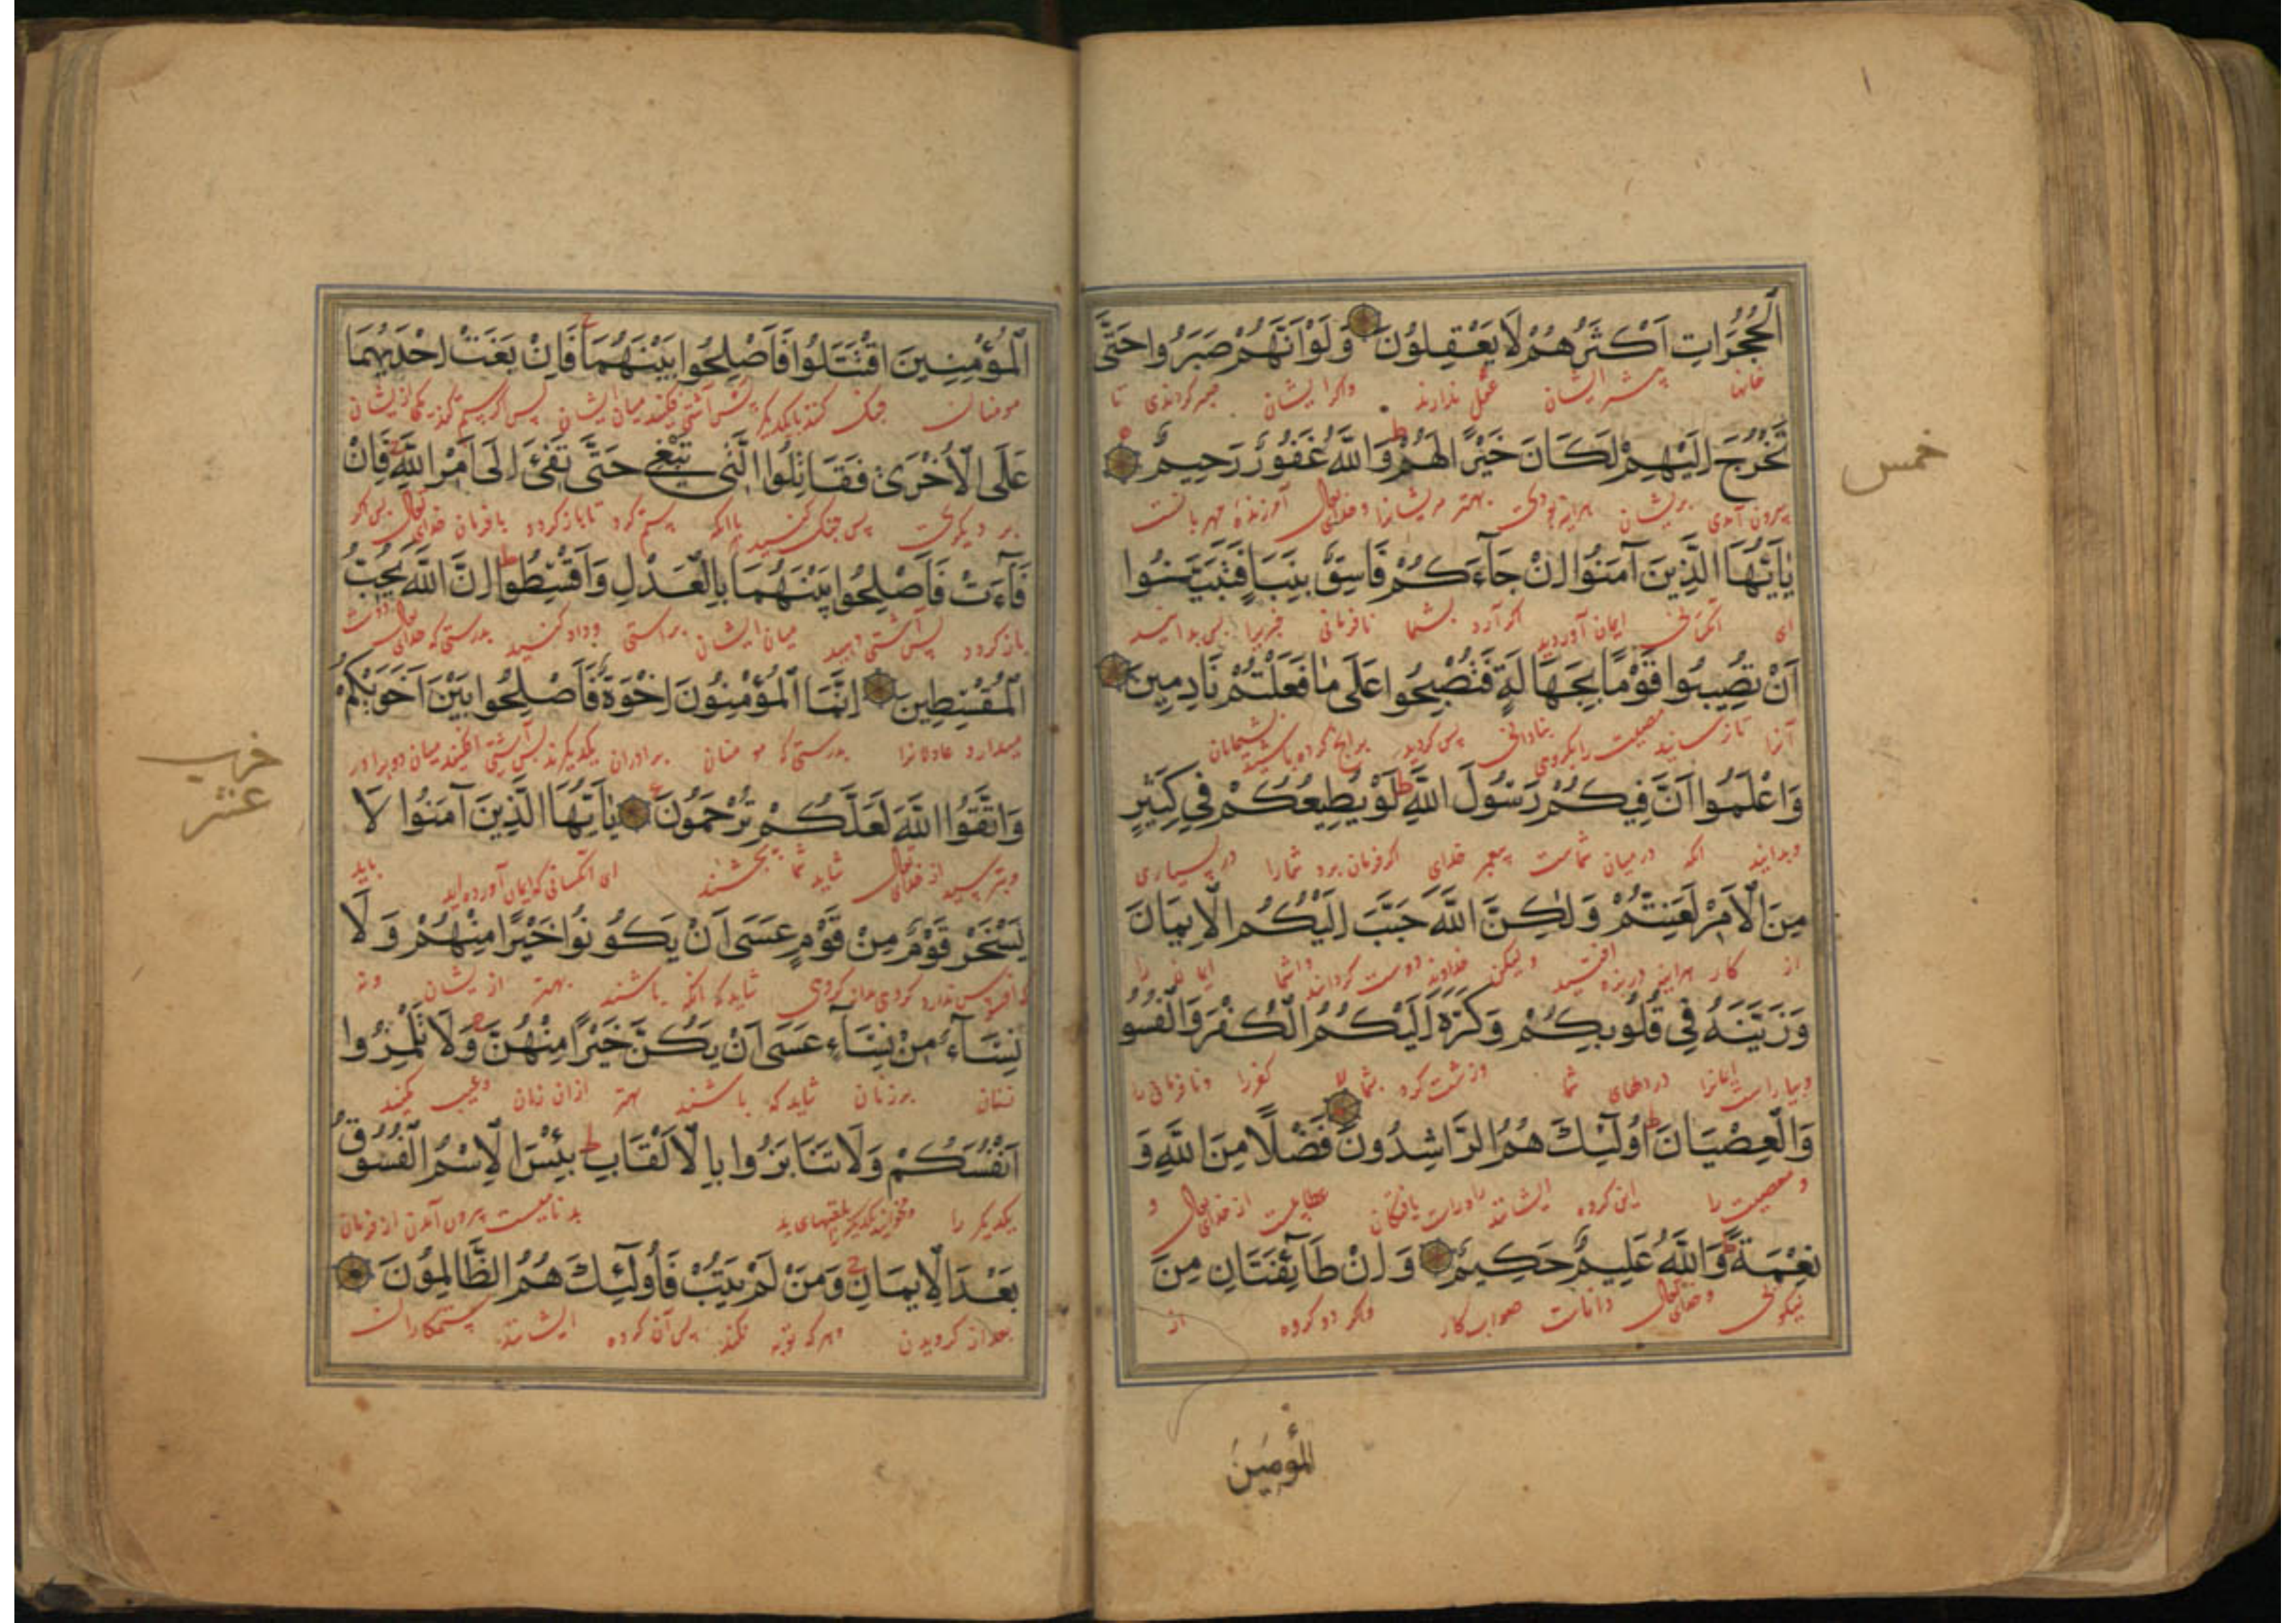 الْحُجُرَاتِ اَكْثَرُهُمْ لَا يَعْقِلُونَ وَلَوْ اَنَّهُمْ صَبَرُوا حَتَّى
خانها بیشتر ایشان عقل ندارند واکر ایشان صبر کردندی تا
تَخْرُجَ اِلَيْهِمْ لَكَانَ خَيْرًا لَهُمْ وَاللّٰهُ غَفُورٌ رَحِيمٌ
بیرون آمدی بریشان هراینه بودی بهتر مریشانرا وخدای تعالی آمرزنده مهربانست
خمس
يَٓا اَيُّهَا الَّذِينَ آمَنُوا اِنْ جَٓاءَكُمْ فَاسِقٌ بِنَبَأٍ فَتَبَيَّنُوا
ای ایمان آوردید اکر آرد بشما نافرمانی خبریرا پس بدانید
اَنْ تُصِيبُوا قَوْمًا بِجَهَالَةٍ فَتُصْبِحُوا عَلَى مَا فَعَلْتُمْ نَادِمِينَ
مصیبت بنادانی پس کردید برانچ کرده باشید پشیمانان
وَاعْلَمُوا اَنَّ فِيكُمْ رَسُولَ اللّٰهِ لَوْ يُطِيعُكُمْ فِي كَثِيرٍ
وبدانید انکه درمیان شماست پیغمبر خدای اکر فرمان برد شمارا در بسیاری
مِنَ الْاَمْرِ لَعَنِتُّمْ وَلٰكِنَّ اللّٰهَ حَبَّبَ اِلَيْكُمُ الْاِيمَانَ
از کار هراینه افتید ولیکن خداوند دوست کردانید
وَزَيَّنَهُ فِي قُلُوبِكُمْ وَكَرَّهَ اِلَيْكُمُ الْكُفْرَ وَالْفُسُو
وبیاراست در دلهای شما وزشت کرد بشما کفررا ونافرمانی را
وَالْعِصْيَانَ اُولَٓئِكَ هُمُ الرَّاشِدُونَ فَضْلًا مِنَ اللّٰهِ وَ
و معصیت را این کروه ایشانند یافتکان از خدای تعالی و
نِعْمَةً وَاللّٰهُ عَلِيمٌ حَكِيمٌ وَاِنْ طَٓائِفَتَانِ مِنَ
نیکوئی وخدای تعالی داناست صواب کار واکر دو کروه از
المؤمنين
الْمُؤْمِنِينَ اقْتَتَلُوا فَاَصْلِحُوا بَيْنَهُمَا فَاِنْ بَغَتْ اِحْدَيهُمَا
مومنان جنک کنند بایکدیکر پس آشتی افکنید میان ایشان پس اکر ستم کند یکی ازیشان
عَلَى الْاُخْرَى فَقَاتِلُوا الَّتِي تَبْغِي حَتَّى تَفِئَ اِلَى اَمْرِ اللّٰهِ فَاِنْ
بر دیکری پس جنک کنید باانکه ستم کرد تا باز کردد بافرمان خدای تعالی پس اکر
فَٓاءَتْ فَاَصْلِحُوا بَيْنَهُمَا بِالْعَدْلِ وَاَقْسِطُوا اِنَّ اللّٰهَ يُحِبُّ
باز کردد پس آشتی دهید میان ایشان براستی وداد کنید بدرستی که خدای تعالی دوست
الْمُقْسِطِينَ اِنَّمَا الْمُؤْمِنُونَ اِخْوَةٌ فَاَصْلِحُوا بَيْنَ اَخَوَيْكُمْ
میدارد عادلانرا بدرستی که مومنان برادران یکدیکرند پس آشتی افکنید میان دو برادر
وَاتَّقُوا اللّٰهَ لَعَلَّكُمْ تُرْحَمُونَ يَٓا اَيُّهَا الَّذِينَ آمَنُوا لَا
وبترسید از خدای تعالی شاید شما ببخشند ای آنکسانی که ایمان آورده اید
حزب
عشر
يَسْخَرْ قَوْمٌ مِنْ قَوْمٍ عَسَى اَنْ يَكُونُوا خَيْرًا مِنْهُمْ وَلَا
کروهی شاید که انکه باشند بهتر ازیشان ونه
نِسَٓاءٌ مِنْ نِسَٓاءٍ عَسَى اَنْ يَكُنَّ خَيْرًا مِنْهُنَّ وَلَا تَلْمِزُوا
زنان برزنان شاید که باشند بهتر ازان زنان وعیب مکنید
اَنْفُسَكُمْ وَلَا تَنَابَزُوا بِالْاَلْقَابِ بِئْسَ الْاِسْمُ الْفُسُوقُ
یکدیکر را ومخوانید یکدیکر بلقبهای بد بد نامیست بیرون آمدن از فرمان
بَعْدَ الْاِيمَانِ وَمَنْ لَمْ يَتُبْ فَاُولَٓئِكَ هُمُ الظَّالِمُونَ
بعد از کرویدن وهرکه توبه نکند پس آن کروه ایشانند ستمکاران